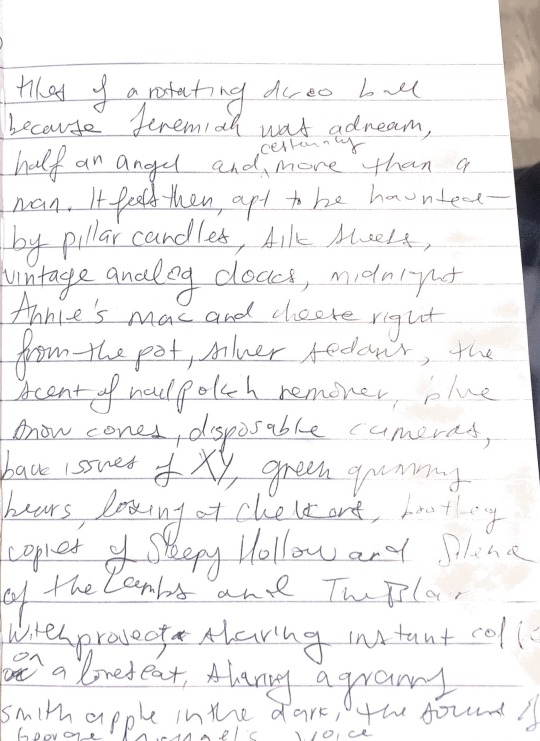 tiles of a rotating disco ball
because Jeremiah was a dream,
half an angel and, certainly more than a
man. It feels then, apt to be haunted
by pillar candles, silk sheets,
vintage analog clocks, midnight
Annie's mac and cheese right
from the pot, silver sedans, the
scent of nail polish remover, blue
snow cones, disposable cameras,
back issues of XY, green gummy
bears, losing at checkers, bootleg
copies of Sleepy Hollow and Silence
of the Lambs and The Blair
Witch project, sharing instant coffee
on a loveseat, sharing a granny
smith apple in the dark, the sound of
George Michael's voice